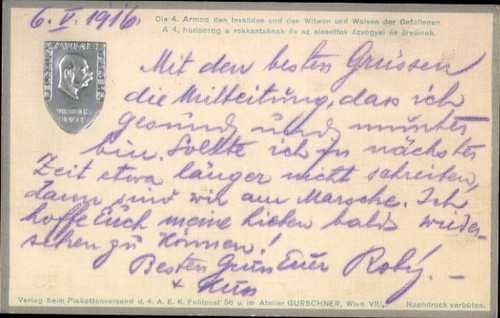 6.V.1916.
Die 4. Armee den Invaliden und den Witwen und Waisen der Gefallenen.
A 4. hadsereg a rokkantaknak és az elesettek özvegyei és árváinak.
Mit den besten Grüssen
die Mitteilung, dass ich
gesund und munter
bin. Sollte ich in nächster
Zeit etwa länger nicht schreiben,
dann sind wir am Marsche. Ich
hoffe Euch meine Lieben bald wieder-
sehen zu können!
Besten Gruss Euer
+ Kuss
Verlag beim Plakettenversand d. 4. A. E. K. Feldpost 56 u. im Atelier GURSCHNER, Wien VII. Nachdruck verboten.